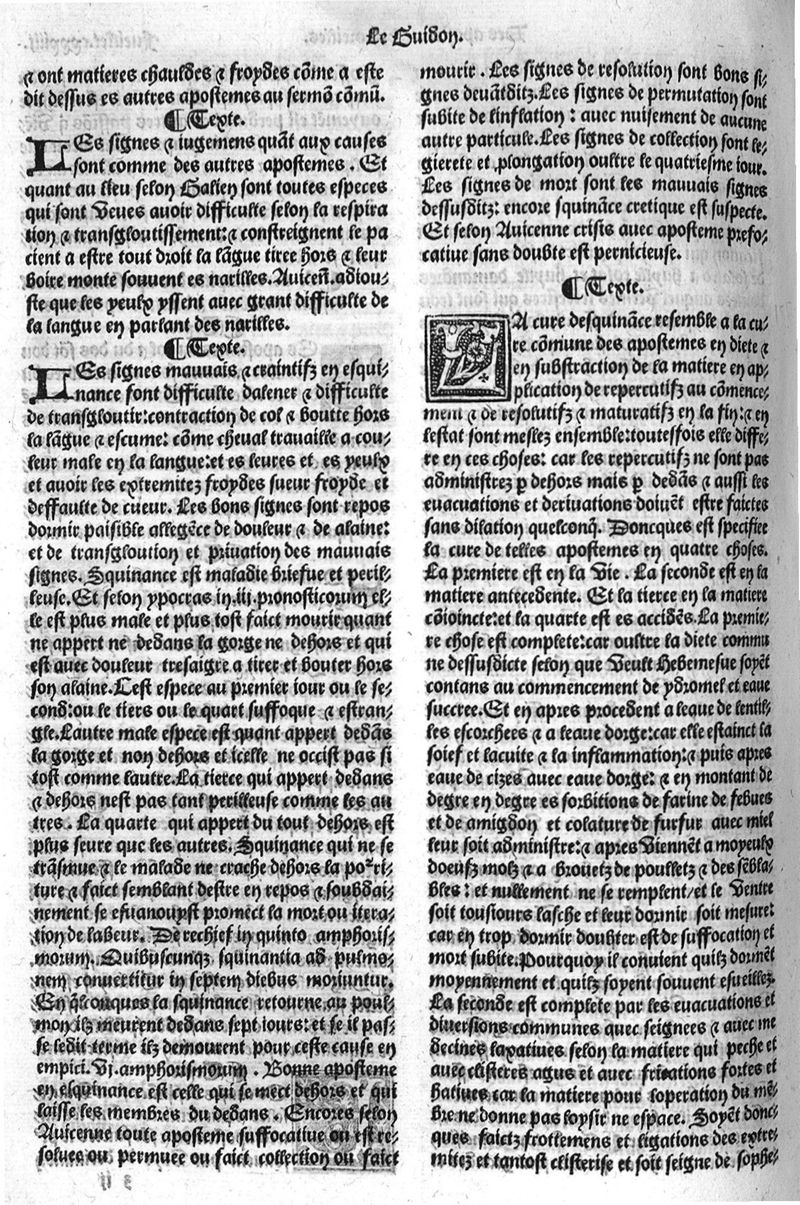 Le Guidon.
⁊ ont matieres chauldes ⁊ froydes cõme a este
dit dessus es autres apostemes au sermõ cõmũ.
¶ Texte.
LEs signes ⁊ iugemens quãt aux causes
sont comme des autres apostemes. Et
quant au lieu selon Galien sont toutes especes
qui sont veues auoir difficulte selon la respira
tion ⁊ transgloutissement: ⁊ constreignent le pa
cient a estre tout droit la lãgue tiree hors ⁊ leur
boire monte souuent es narilles. Auicen. adiou-
ste que les yeulx yssent auec grant difficulte de
la langue en parlant des narilles.
¶ Texte.
LEs signes mauuais ⁊ craintifz en esqui-
nance sont difficulte dalener ⁊ difficulte
de transgloutir: contraction de col ⁊ boutte hors
la lãgue ⁊ escume: cõme cheual trauaille a cou-
leur male en la langue: et es leures et es yeulx
et auoir les extremitez froydes sueur froyde et
deffaulte de cueur. Les bons signes sont repos
dormir paisible allegẽce de douleur ⁊ de alaine:
et de transgloution et priuation des mauuais
signes. Squinance est maladie briefue et peril-
leuse. Et selon ypocras in.iij. pronosticorum el-
le est plus male et plus tost faict mourir quant
ne appert ne dedans la gorge ne dehors et qui
est auec douleur tresaigre a tirer et bouter hors
son alaine. Cest espece au premier iour ou le se-
cond: ou le tiers ou le quart suffoque ⁊ estran-
gle. Lautre male espece est quant appert dedãs
la gorge et non dehors et icelle ne occist pas si
tost comme lautre. La tierce qui appert dedans
⁊ dehors nest pas tant perilleuse comme les au
tres. La quarte qui appert du tout dehors est
plus seure que les autres. Squinance qui ne se
trãsmue ⁊ le malade ne crache dehors la porri-
ture ⁊ faict semblant destre en repos ⁊ soubdai-
nement se esuanouyst promect la mort ou itera-
tion de labeur. De rechief in quinto amphoris-
morum. Quibuscunq; squinantia ad pulmo-
nem conuertitur in septem diebus moriuntur.
En q̃lconques la squinance retourne au poul-
mon ilz meurent dedans sept iours: et se il pas-
se ledit terme ilz demourent pour ceste cause en
empici. vj. amphorismorum. Bonne aposteme
en esquinance est celle qui se mect dehors et qui
laisse les membres du dedans. Encores selon
Auicenne toute aposteme suffocatiue ou est re-
solues ou permuee ou faict collection ou faict
mourir. Les signes de resolution sont bons si-
gnes deuãtditz. Les signes de permutation sont
subite de linflation: auec nuisement de aucune
autre particule. Les signes de collection sont le-
gierete et ꝓlongation oultre le quatriesme iour.
Les signes de mort sont les mauuais signes
dessusditz: encore squinãce cretique est suspecte.
Et selon Auicenne crisis auec aposteme prefo-
catiue sans doubte est pernicieuse.
¶ Texte.
LA cure desquinãce resemble a la cu-
re cõmune des apostemes en diete ⁊
en substraction de la matiere en ap-
plication de repercutifz au cõmence-
ment ⁊ de resolutifz ⁊ maturatifz en la fin: ⁊ en
lestat sont meslez ensemble: toutesfois elle diffe-
re en ces choses: car les repercutifz ne sont pas
administrez ꝑ dehors mais ꝑ dedãs ⁊ aussi les
euacuations et deriuations doiuẽt estre faictes
sans dilation quelconq̃. Doncques est specifiee
la cure de telles apostemes en quatre choses.
La premiere est en la vie. La seconde est en la
matiere antecedente. Et la tierce en la matiere
cõioincte: et la quarte est es accidẽs. La premie-
re chose est complete: car oultre la diete commu
ne dessusdicte selon que veult Hebemesue soyẽt
contans au commencement de ydromel et eaue
succree. Et en apres procedent a leaue de lentil-
les escorchees ⁊ a leaue dorge: car elle estainct la
soief et lacuite ⁊ la inflammation: ⁊ puis apres
eaue de cizes auec eaue dorge: ⁊ en montant de
degre en degre es sorbitions de farine de febues
et de amigdon et colature de furfur auec miel
leur soit administre: ⁊ apres viennẽt a moyeulx
doeufz molz ⁊ a brouetz de poulletz ⁊ des sẽbla-
bles: et nullement ne se remplent/ et le ventre
soit tousiours lasche et leur dormir soit mesure:
car en trop dormir doubter est de suffocation et
mort subite. Pourquoy il conuient quilz dormẽt
moyennement et quilz soyent souuent esueillez.
La seconde est complete par les euacuations et
diuersions communes auec seignees ⁊ auec me
decines laxatiues selon la matiere qui peche et
auec clisteres agus et auec frications fortes et
hatiues car la matiere pour loperation du mẽ-
bre ne donne pas loysir ne espace. Soyẽt donc-
ques faictz frottemens et ligations des extre-
mitez et tantost clisterise et soit seigne de sophe-